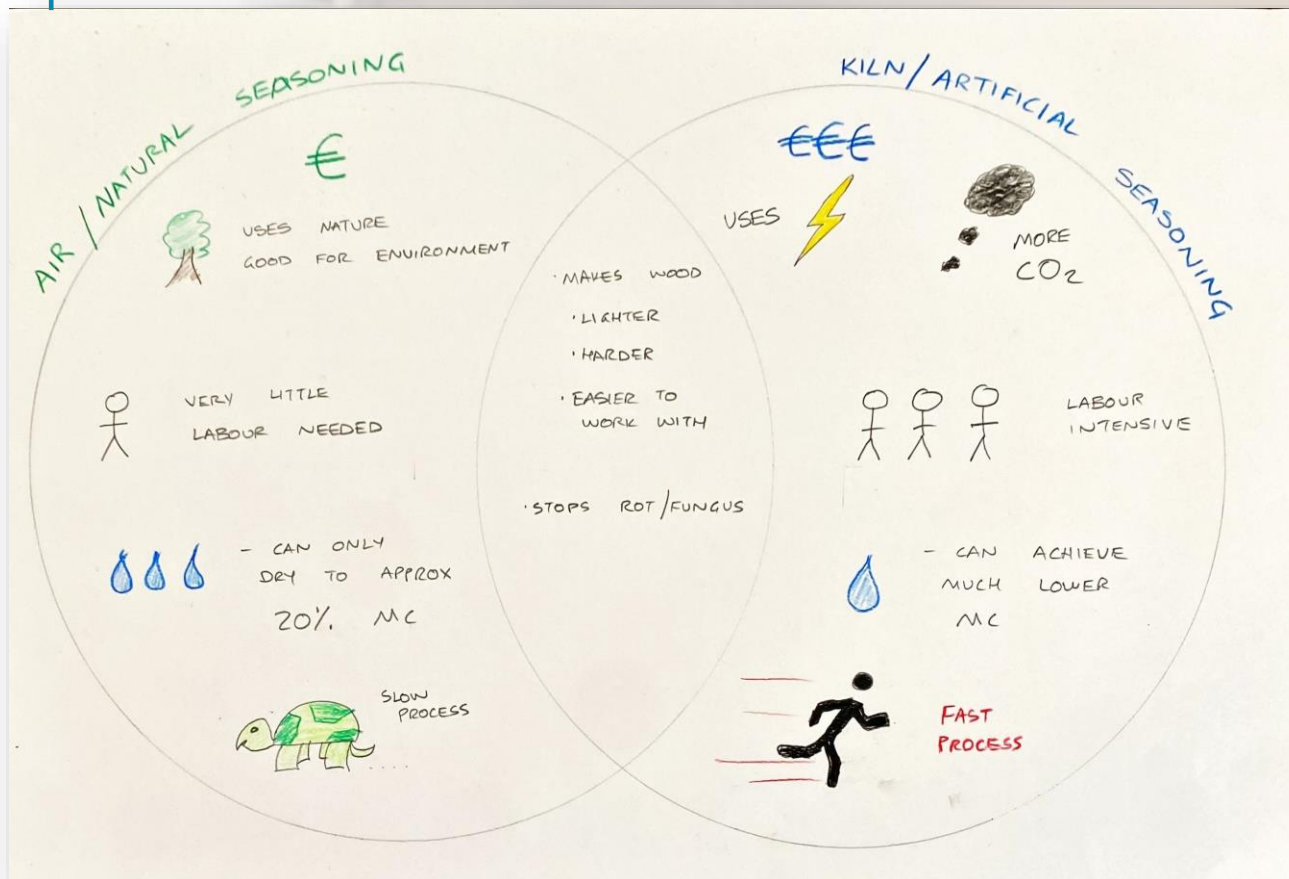 AIR / NATURAL SEASONING
€
USES NATURE
GOOD FOR ENVIRONMENT
VERY LITTLE
LABOUR NEEDED
- CAN ONLY
DRY TO APPROX
20% MC
SLOW
PROCESS
· MAKES WOOD
· LIGHTER
· HARDER
· EASIER TO
WORK WITH
· STOPS ROT/FUNGUS
KILN/ARTIFICIAL SEASONING
€€€
USES
MORE
CO2
LABOUR
INTENSIVE
- CAN ACHIEVE
MUCH LOWER
MC
FAST
PROCESS